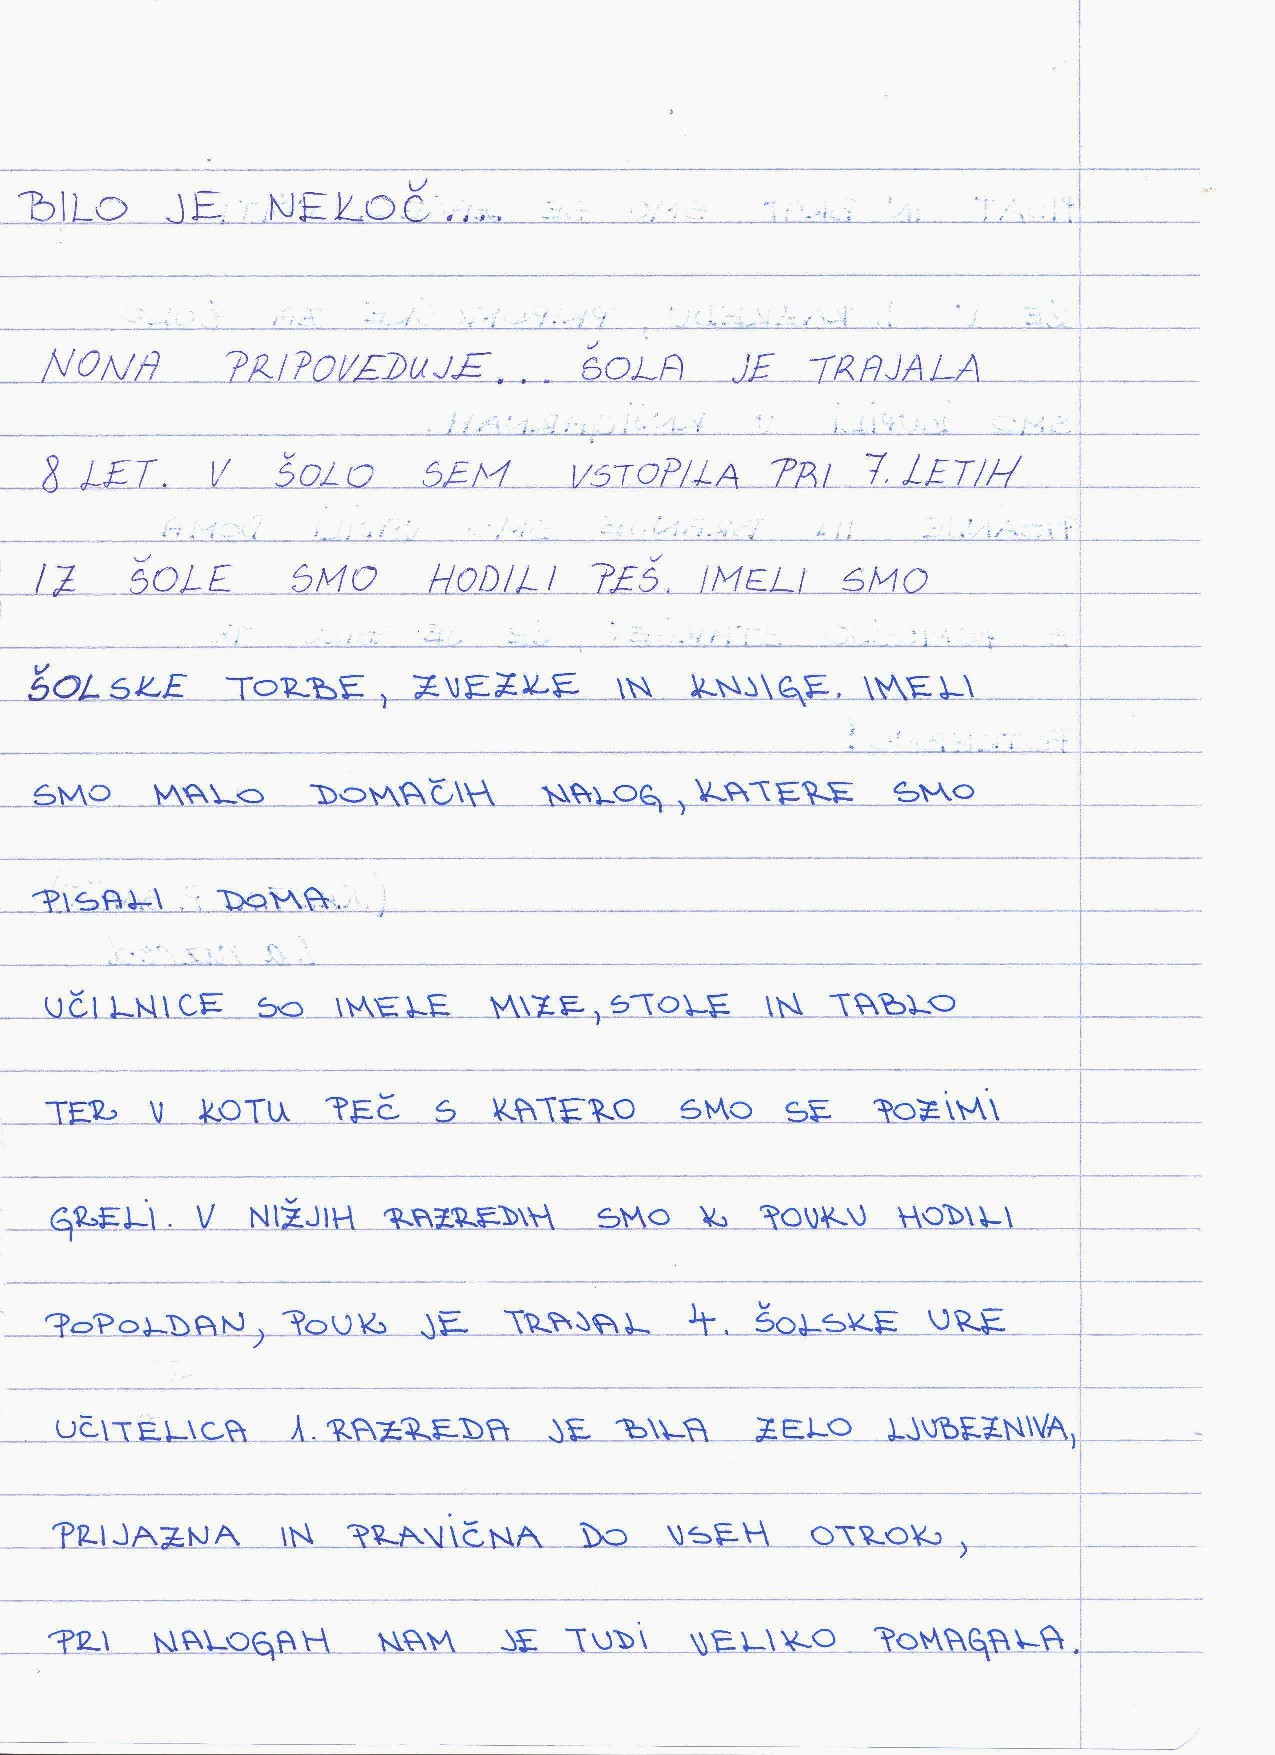 BILO JE NEKOČ....
NONA PRIPOVEDUJE... ŠOLA JE TRAJALA
8 LET. V ŠOLO SEM VSTOPILA PRI 7. LETIH
IZ ŠOLE SMO HODILI PEŠ. IMELI SMO
ŠOLSKE TORBE, ZVEZKE IN KNJIGE. IMELI
SMO MALO DOMAČIH NALOG, KATERE SMO
PISALI DOMA.
UČILNICE SO IMELE MIZE, STOLE IN TABLO
TER V KOTU PEČ S KATERO SMO SE POZIMI
GRELI. V NIŽJIH RAZREDIH SMO K POUKU HODILI
POPOLDAN, POUK JE TRAJAL 4. ŠOLSKE URE
UČITELICA 1. RAZREDA JE BILA ZELO LJUBEZNIVA,
PRIJAZNA IN PRAVIČNA DO VSEH OTROK,
PRI NALOGAH NAM JE TUDI VELIKO POMAGALA.